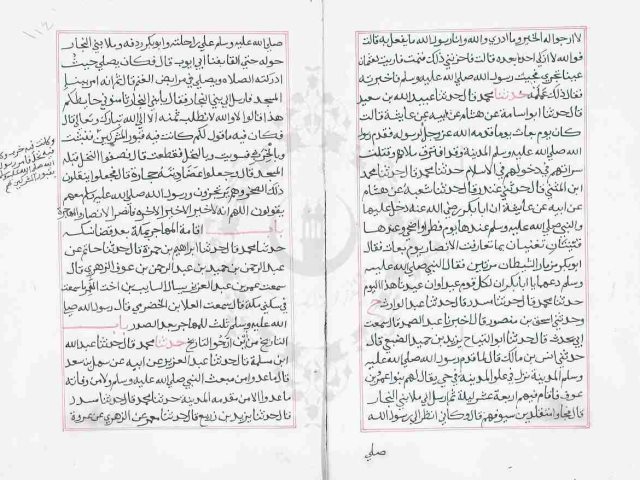 لا ارجو له الخير وما ادري والله وانا رسول الله ما يفعل به قالت
فوالله لا ازكي احدا بعده قالت فاحزنني ذلك فنمت فاريت لعثمان
عينا تجري فجيت رسول الله صلي الله عليه وسلم فاخبرته
فقال ذلك عمله حدثنا محمد قال حدثنا عبيد الله بن سعيد
قال حدثنا ابو اسامة عن هشام عن ابيه عن عايشة قالت
كان يوم بعاث يوما قدمه الله عز وجل لرسوله فقدم رسول
الله صلي الله عليه وسلم المدينة وقد افترق ملاؤهم وقتلت
سراتهم في دخولهم في الاسلام حدثنا محمد قال حدثنا محمد
ابن المثني قال حدثني غندر قال حدثنا شعبة عن هشام
عن ابيه عن عايشة ان ابا بكر رضي الله عنه دخل عليها
والنبي صلي الله عليه وسلم عندها يوم فطر او اضحي وعندها
قينتان تغنيان بما تعازفت الانصار يوم بعاث فقال
ابو بكر مزمار الشيطان مرتين فقال النبي صلي الله عليه
وسلم دعهما يا ابا بكر ان لكل قوم عيدا وان عيدنا هذا اليوم
حدثنا محمد قال حدثنا مسدد قال حدثنا عبد الوارث ح
وحدثني اسحق بن منصور قال اخبرنا عبد الصمد قال سمعت
ابي يحدث قال حدثنا ابو التياح يزيد بن حميد الضبعي قال
حدثني انس بن مالك قال لما قدم رسول الله صلي الله عليه
وسلم المدينة نزل في علو المدينة في حي يقال لهم بنو عمرو بن
عوف فاقام فيهم اربعة عشر ليلة ثم ارسل الي ملا بني النجار
قال فجاوا متقلدين سيوفهم قال وكاني انظر الي رسول الله
صلي
صلي الله عليه وسلم علي راحلته وابو بكر ردفه وملا بني النجار
حوله حتي القا بفنا ابي ايوب قال فكان يصلي حيث
ادركته الصلاة ويصلي في مرابض الغنم قال ثم انه امر ببنا
المسجد فارسل الي بني النجار فقال يا بني النجار ثامنوني حايطكم
هذا قالوا لا والله لا نطلب ثمنه الا الي الله تبارك وتعالي قال
فكان فيه ما اقول لكم كانت فيه قبور المشركين فنبشت
وبالخرب فسويت وبالنخل فقطعت قال فصفوا النخل قبلة
المسجد قال وجعلوا عضادتيه حجارة قال جعلوا ينقلون
ذلك الصخر وهم يرتجزون ورسول الله صلي الله عليه وسلم معهم
يقولون اللهم انه لا خير الا خير الاخره فانصر الانصار والمهاجرة
باب اقامة المهاجر بمكة بعد قضا نسكه
حدثنا محمد قال حدثنا ابراهيم بن حمزة قال حدثنا حاتم عن
عبد الرحمن بن حميد بن عبد الرحمن بن عوف الزهري قال
سمعت عمر بن عبد العزيز يسال السايب بن اخت النمر ما سمعت
في سكني مكة قال سمعت العلا بن الحضرمي قال رسول الله صلي
الله عليه وسلم ثلث للمهاجر بعد الصدر باب
التاريخ من اين ارخوا التاريخ حدثنا محمد قال حدثنا عبد الله
ابن مسلمة قال حدثنا عبد العزيز عن ابيه عن سهل بن سعد
قال ما عدوا من مبعث النبي صلي الله عليه وسلم ولا من وفاته
ما عدوا الا من مقدمه المدينة حدثنا محمد قال حدثنا مسدد
قال حدثنا يزيد بن زريع قال حدثنا معمر عن الزهري عن عروة